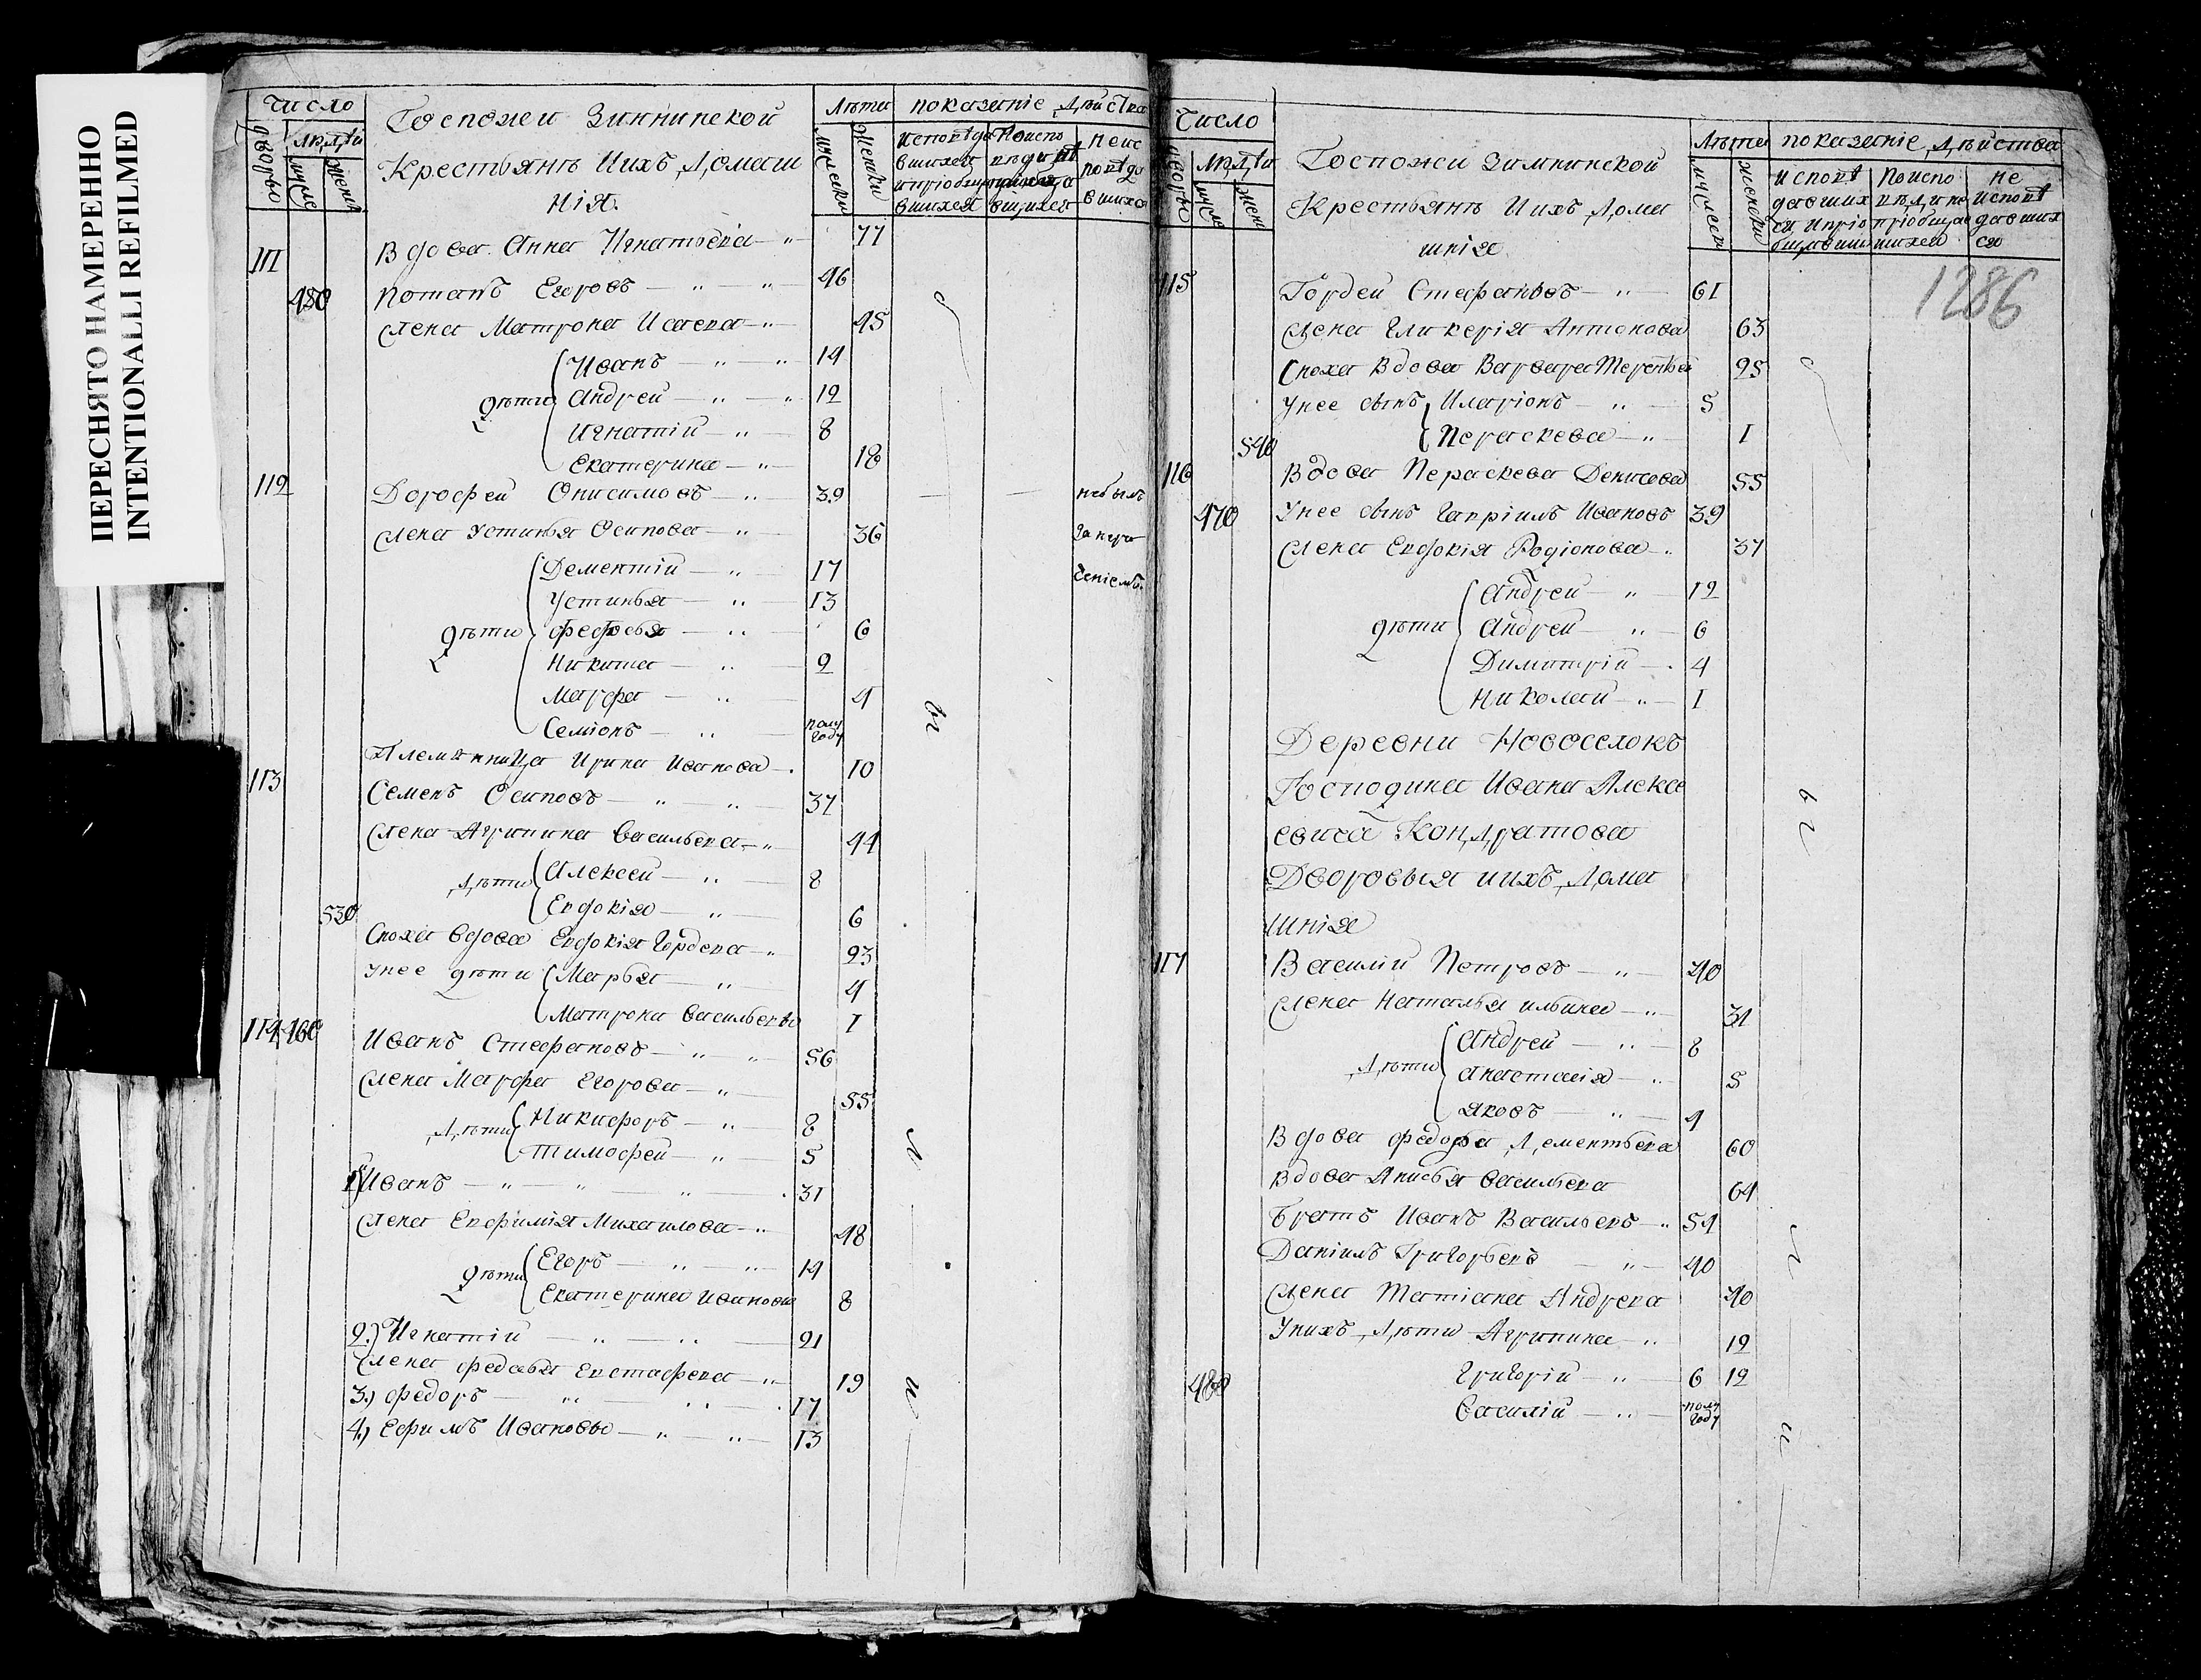 ПЕРЕСНЯТО НАМЕРЕННО
INTENTIONALLI REFILMED
Число
дворовъ
людѣй
мужес
женск
Госпожи Зиннинской
Крестьянъ ихъ домаш
нія.
Лѣта
мужески
женски
показаніе дѣйства
исповѣда
вшихся
и пріобщи
вшихся
по испо
вѣди не
пріобща
вшихся
не ис
повѣдо
вшихся
111 Вдова Анна Игнатьева 77
450 Потапъ Егоровъ 46
жена Матрона Исаева 45
Иванъ 14
дѣти Андрей 12
Игнатій 8
Екатерина 18
112 Дорофей Онисимовъ 39 небылъ
жена Устинья Осипова 36 за нера
Дементій 17 ченіемъ.
Устинья 13
дѣти Федосья 6
Никита 2
Марфа 4
Семіонъ полу году
Племянница Ирина Иванова 10
113 Семенъ Осиповъ 37
жена Агрипина Васильева 44
дѣти Алексей 8
530 Евдокія 6
Сноха вдова Евдокія Гордева 23
у нее дѣти Марья 4
Матрона Васильевы 1
114 460 Иванъ Стефановъ 56
жена Марфа Егорова 55
дѣти Никифоръ 8
Тимофей 5
1) Иванъ 31
жена Евфимія Михаилова 48
дѣти Егоръ 14
Екатерина Ивановы 8
2.) Игнатій 21
жена Федосья Евстафева 19
3.) Федоръ 17
4.) Ефимъ Ивановы 13
Число
дворовъ
людѣй
мужес
жен
Госпожи Зимнинской
Крестьянъ ихъ дома
шнія.
Лѣта
мужески
женски
показаніе дѣйства
исповѣ
давших
ся и прiо
бщивши
по испо
вѣди не
пріобщав
шихся
не
исповѣ
давших
ся
1286
115 Гордей Стефановъ 61
жена Гликерія Антонова 63
Сноха Вдова Варвара Терентьева 25
У нее сынъ Иларіонъ 5
540 Пераскева 1
116 Вдова Пераскева Денисова 55
470 У нее сынъ Гавріилъ Ивановъ 39
жена Евдокія Родіонова 37
Андрей 12
дѣти Андрей 6
Димитрій 4
Николай 1
Деревни Новоселокъ
Господина Ивана Алекс
евича Кондратова
Дворовыя и ихъ дома
шнія
117 Василій Петровъ 40
жена Наталья ильина 31
Андрей 8
дѣти анастасія 5
яковъ 4
Вдова Федора Дементьева 60
Вдова Анисья Васильева 64
Братъ Иванъ Васильевъ 54
Даніилъ Григорьевъ 40
жена Татіана Андрева 40
У нихъ дѣти Агрипина 12
480 Григорій 6 12
Василій полу году